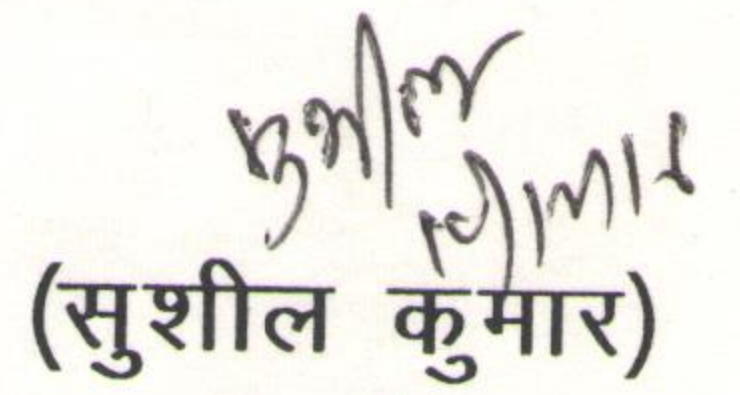 सुशील
कुमार
(सुशील कुमार)